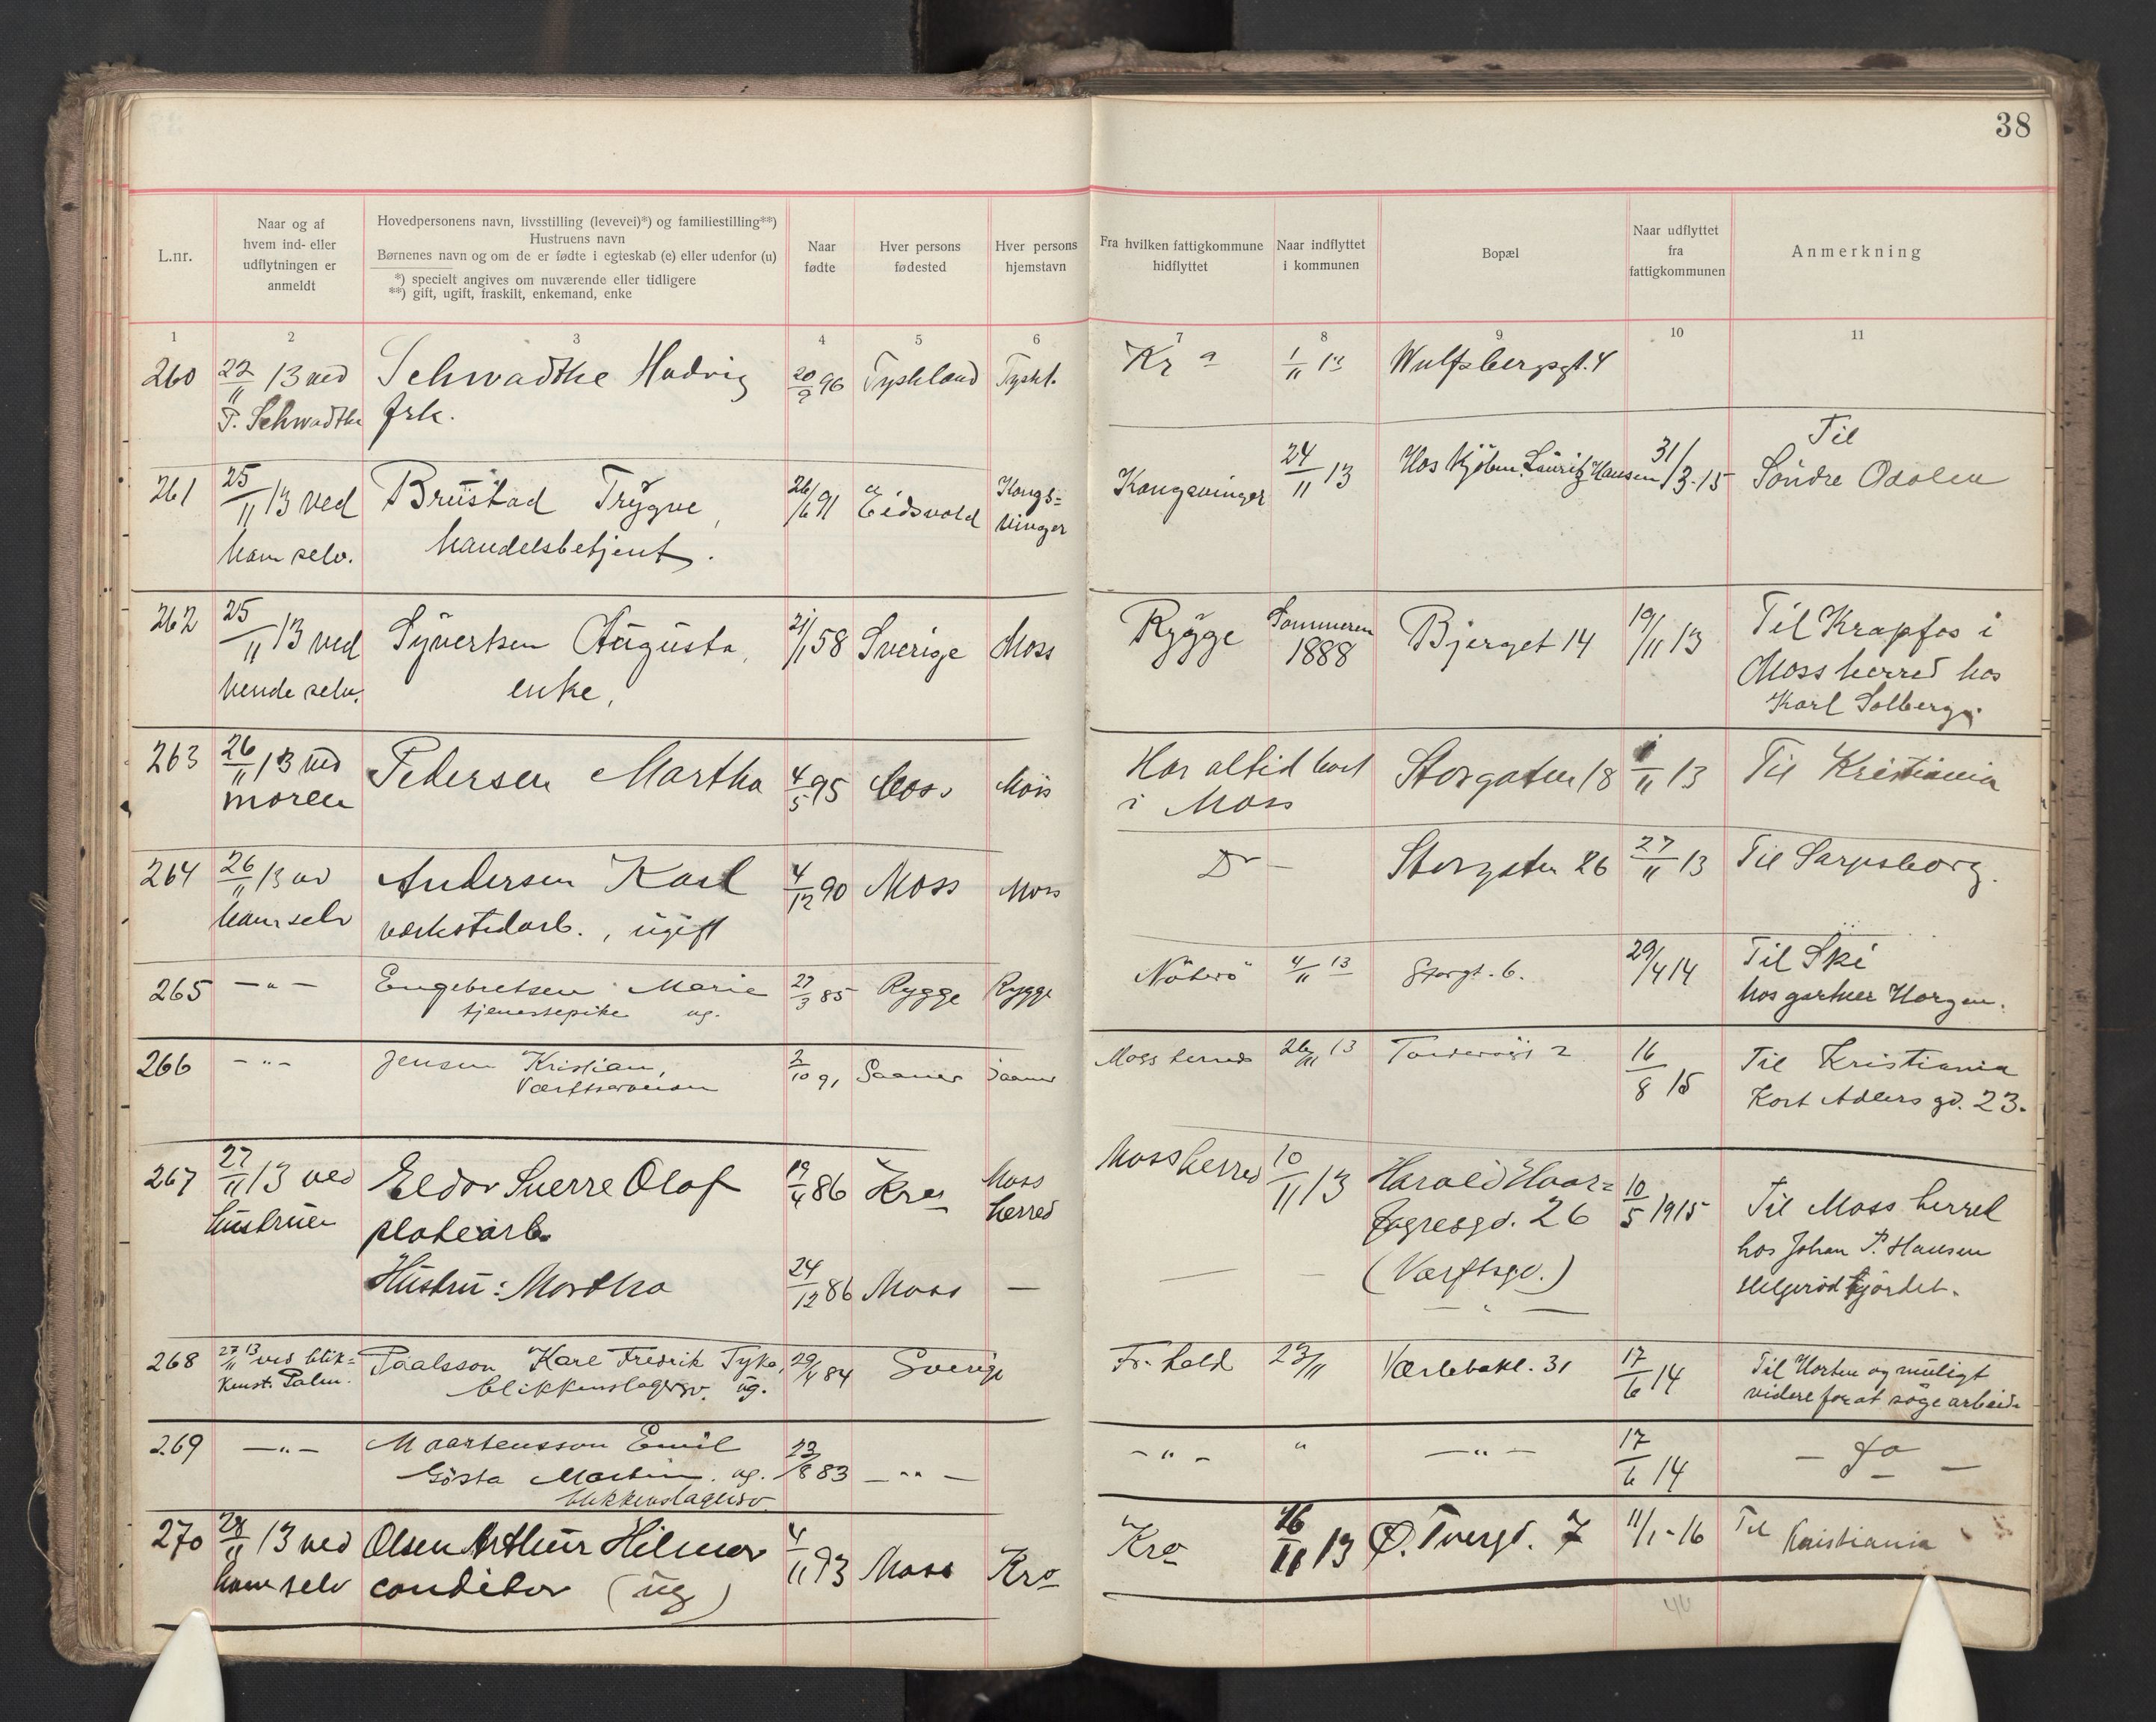 38
L.nr.
Naar og af
hvem ind- eller
udflytningen er
anmeldt
Hovedpersonens navn, livsstilling (levevei)*) og familiestilling**)
Hustruens navn
Børnenes navn og om de er fødte i egteskab (e) eller udenfor (u)
*) specielt angives om nuværende eller tidligere
**) gift, ugift, fraskilt, enkemand, enke
Naar
fødte
Hver persons
fødested
Hver persons
hjemstavn
Fra hvilken fattigkommune
hidflyttet
Naar indflyttet
i kommunen
Bopæl
Naar udflyttet
fra
fattigkommunen
Anmerkning
1 2 3 4 5 6 7 8 9 10 11
260 22/11 13 ved Schwadtke Hedvig 20/9 96 Tyskland Tyskl. Kr a 1/11 13 Wulfsbergsgt. 4
P. Schwadtke frk.
261 25/11 13 ved Brustad Trygve, 26/6 91 Eidsvold Kongs= Kongsvinger 24/11 13 Hos Kjøbm. Lauritz Hansen 31/3-15 Til
vinger Söndre Odalen
ham selv. handelsbetjent.
262 25/11 13 ved Syvertsen Augusta, 21/1 58 Sverige Moss Rygge Sommeren Bjerget 14 19/11 13 Til Krapfos i
1888
hende selv. enke, Moss herred hos
Karl Solberg
263 26/11 13 ved Pedersen Martha 4/5 95 Moss Moss Har altid boet Storgaten 18 1/11 13 Til Kristiania
moren i Moss
264 26/11 13 av Andersen Karl 4/12 90 Moss Moss Do - Storgaten 26 27/11 13 Til Sarpsborg.
ham selv verkstedarb., ugift
265 -"- Engebretsen Marie 27/3 85 Rygge Rygge Nöterö 4/11 13 Storgt. 6. 29/4 14 Til Ski
tjenestepike ug. hos gartner Horgen.
266 -"- Jensen Kristian, 2/10 91 Saaner Saaner Moss herred 26/11 13 16/8 15 Til Kristiania
Kort Adlers gd. 23.
267 27/11 13 ved Eldor Sverre Olaf 19/4 86 Kra Moss Moss herred 10/11 13 Harald Haar= 10/5 1915 Til Moss herred
herred
hustruen platearb. fagresgd. 26 hos Johan P. Hansen
Hustru: Martha 24/12 86 Moss - - - (Værftsgd.) Helgerödkjördet.
- " -
268 27/11 13 ved blik= Paalsson Karl Fredrik Tyko, 29/4 84 Sverige Fr. hald 23/11 Værlebakk. 31 17/6 14 Til Horten og muligt
kenst. Palm. blikkenslagersv. ug. videre for at söge arbeide
269 -"- Maartensson Emil 23/8 83 -"- -"- " -"- 17/6 14 - Do -
Gösta Martin. ug.
blikkenslagersv.
270 28/11 13 ved Olsen Arthur Hilmar 4/11 93 Moss Kra Kra 16/11 13 Ø. Tvergd. 7 11/1-16 Til Kristiania
ham selv conditor (ug)